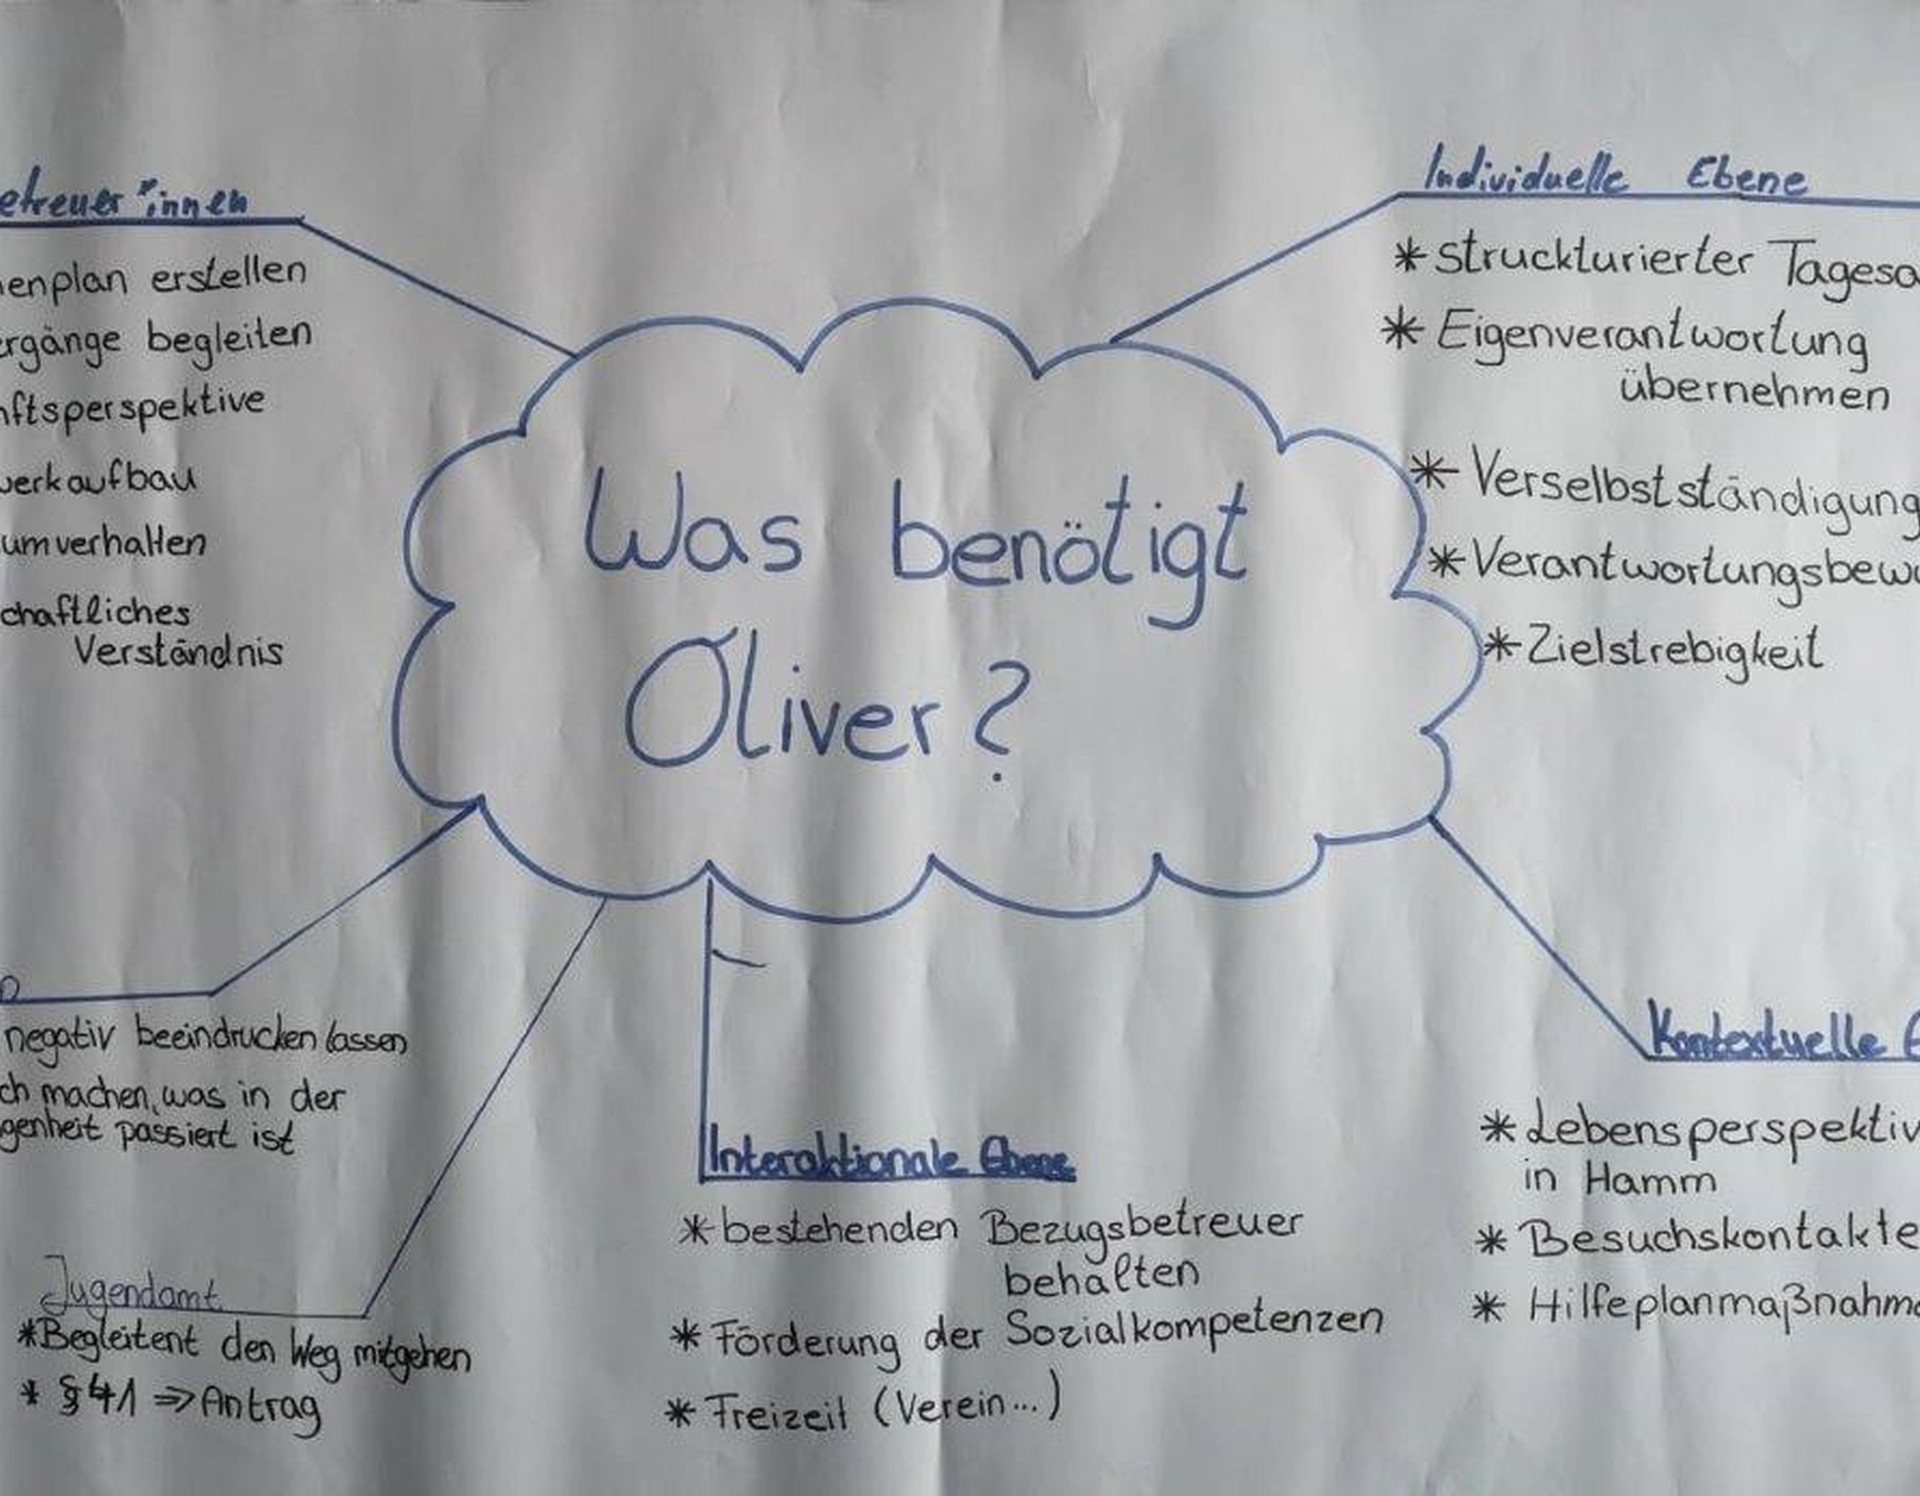 etreuer*innen
enplan erstellen
rgänge begleiten
ftsperspektive
werkaufbau
umverhalten
chaftliches
Verständnis
Was benötigt
Oliver?
Individuelle Ebene
* struckturierter Tagesa
* Eigenverantwortung
übernehmen
* Verselbstständigung
* Verantwortungsbewu
* Zielstrebigkeit
negativ beeindrucken lassen
ch machen, was in der
genheit passiert ist
Jugendamt
* Begleitent den Weg mitgehen
* §41 => Antrag
Interaktionale Ebene
* bestehenden Bezugsbetreuer
behalten
* Förderung der Sozialkompetenzen
* Freizeit (Verein...)
Kontextuelle E
* Lebensperspektiv
in Hamm
* Besuchskontakte
* Hilfeplanmaßnahme